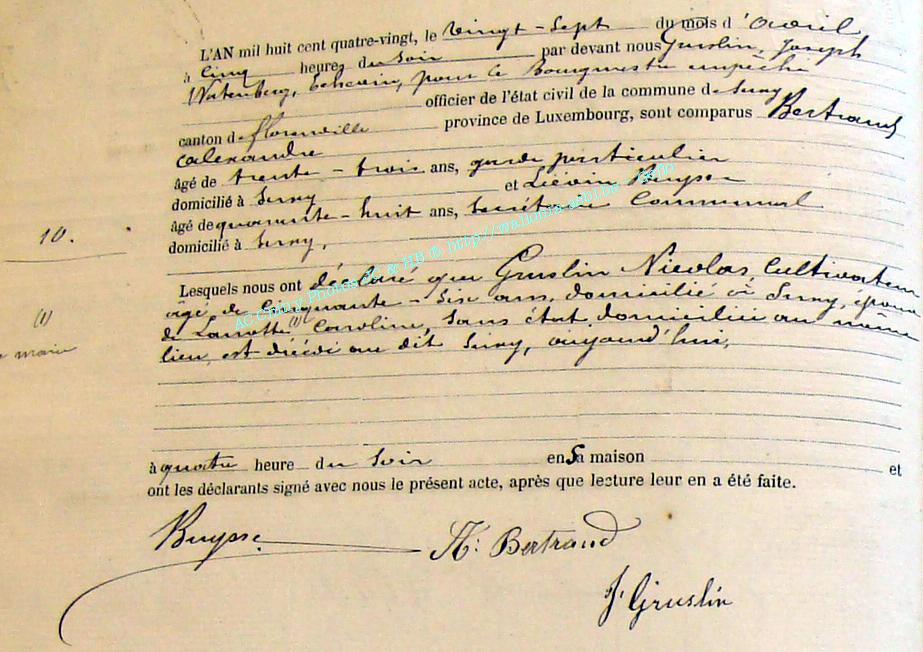 L'AN mil huit cent quatre-vingt, le Vingt-Sept du mois d'avril
à Cinq heures du Soir par devant nous Gruslin, Joseph
Watenberg, Echevin, pour le Bourgmestre empêché
officier de l'état civil de la commune de Suxy
canton de florenville province de Luxembourg, sont comparus Bertrand
alexandre
âgé de trente-trois ans, garde particulier
domicilié à Suxy et Liévin Buysse
âgé de quarante-huit ans, Secrétaire Communal
domicilié à Suxy,
10.
Lesquels nous ont déclaré que Gruslin Nicolas, Cultivateur
âgé de Cinquante-Six ans, domicilié à Suxy, époux
de (1) Caroline, Sans état, domiciliée au même
lieu, est décédé au dit Suxy, aujourd'hui,
(1)
à quatre heure du Soir en Sa maison et
ont les déclarants signé avec nous le présent acte, après que lecture leur en a été faite.
Buysse
A: Bertrand
J Gruslin